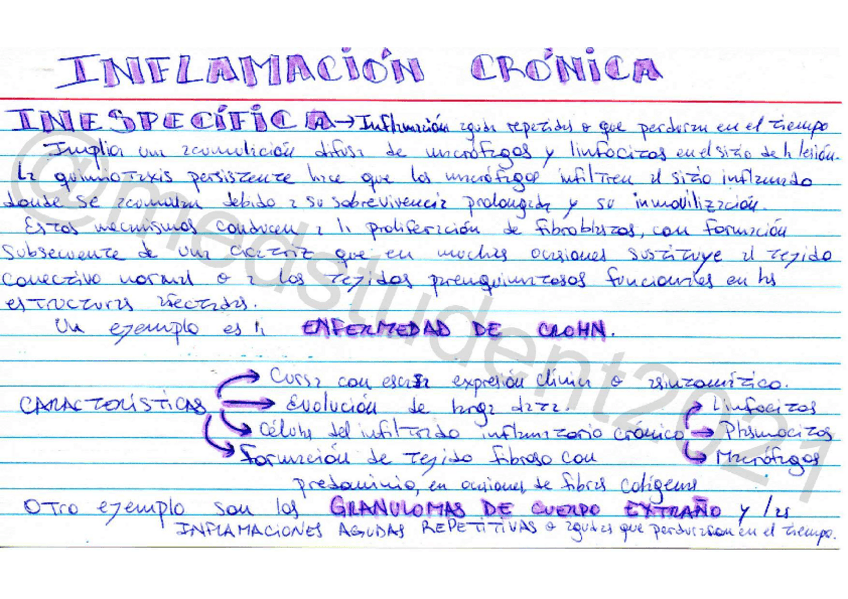 INFLAMACIÓN CRÓNICA
INESPECÍFICA → Inflamación aguda repetidas o que perduran en el tiempo
Implica una acumulación difusa de macrófagos y linfocitos en el sitio de la lesión.
La quimiotaxis persistente hace que los macrófagos infiltren el sitio inflamado
donde se acumulan debido a su sobrevivencia prolongada y su inmovilización.
Estos mecanismos conducen a la proliferación de fibroblastos, con formación
subsecuente de una cicatriz que en muchas ocasiones sustituye el tejido
conectivo normal o a los tejidos parenquimatosos funcionales en las
estructuras afectadas.
Un ejemplo es la ENFERMEDAD DE CROHN.
Cursa con escasa expresión clínica o asintomático.
CARACTERÍSTICAS → Evolución de larga data.
Células del infiltrado inflamatorio crónico → Linfocitos
Plasmocitos
Macrófagos
Formación de tejido fibroso con
predominio, en ocasiones de fibras colágenas
Otro ejemplo son los GRANULOMAS DE CUERPO EXTRAÑO y las
INFLAMACIONES AGUDAS REPETITIVAS o agudas que perduran en el tiempo.
@medstudent2021